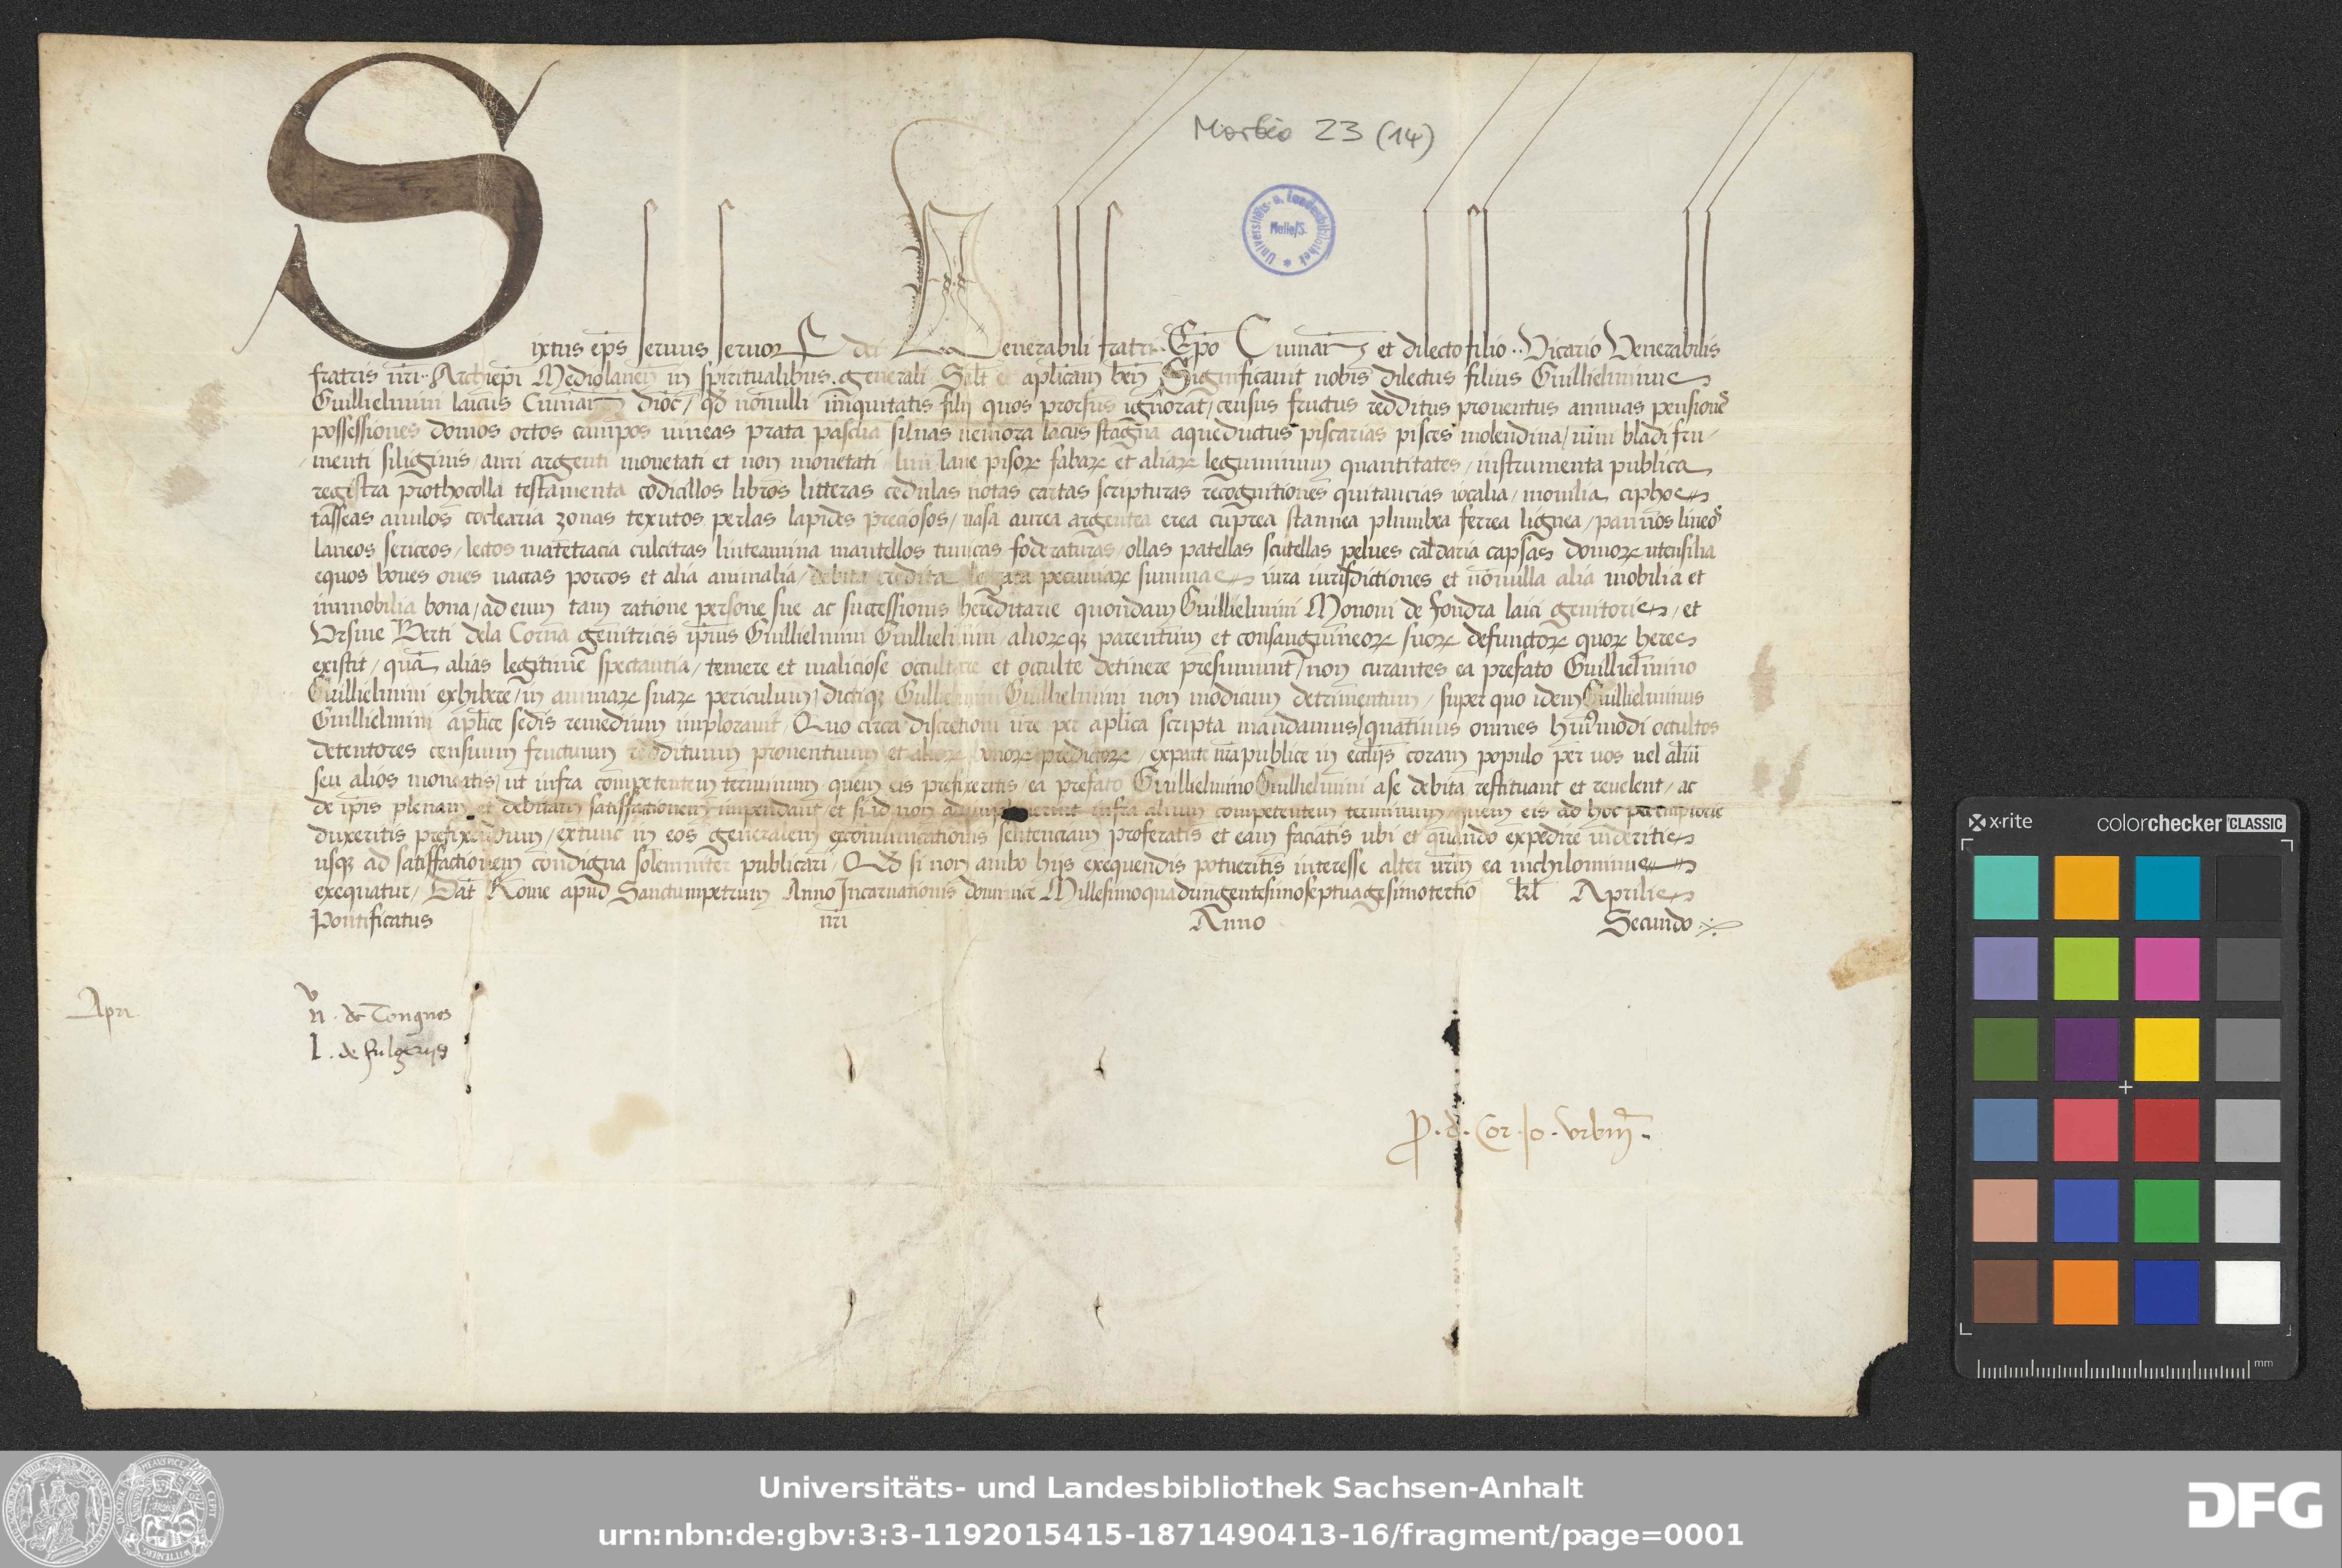 Morbio 23 (14)
Universitäts- u. Landesbibliothek Halle/S.
Sixtus ep̄s seruus seruoꝝ dei Venerabili fratri .. Ep̄o Cumān et dilecto filio .. Vicario Venerabilis
fratris nr̄i .. Archiep̄i Mediolanen̄ in spiritualibus generali Salt̄ et ap̄licam ben̄ Significauit nobis dilectus filius Guillielminus
Guillielmini laicus Cumān dioc̄ / qđ nonnulli iniquitatis filij quos prorsus ignorat / census fructus redditus prouentus annuas pensiones
possessiones domos ortos campos uineas prata pascua siluas nemora lacus stagna aqueductus piscarias pisces molendina / uini bladi fru-
menti siliginis / auri argenti monetati et non monetati / lini lane pisoꝝ fabaꝝ et aliaꝝ leguminum quantitates / instrumenta publica
registra prothocolla testamenta codicillos libros litteras cedulas notas cartas scripturas recognitiones quitancias iocalia / monilia ciphos
tasseas anulos coclearia zonas texutos perlas lapides preciosos / uasa aurea argentea erea cuprea stannea plumbea ferrea lignea / pannos lineos
laneos sericeos / lectos matetracia culcitras linteamina mantellos tunicas foderaturas / ollas patellas scutellas pelues caldaria capsas domoꝝ utensilia
equos boues oues uaccas porcos et alia animalia / debita credita legata pecuniaꝝ summas iura iurisdictiones et nonnulla alia mobilia et
immobilia bona / ad eum tam ratione persone sue ac successionis hereditarie quondam Guillielmini Mononi de Fondra laici genitoris / et
Vrsine Berti dela Corna genitricis ip̄ius Guillielmini Guillielmini / alioꝝqꝫ parentum et consanguineoꝝ suoꝝ defunctoꝝ quoꝝ heres
existit / quā alias legitime spectantia / temere et maliciose occultare et occulte detinere presumunt / non curantes ea prefato Guillielmino
Guillielmini exhibere / in animaꝝ suaꝝ periculum / dictiqꝫ Guillielmini Guillielmini non modicum detrimentum / super quo idem Guillielminus
Guillielmini ap̄lice sedis remedium implorauit / Quo circa discretioni ur̄e per ap̄lica scripta mandamus / quatinus omnes hmōi occultos
detentores censuum fructuum reddituum prouentuum et alioꝝ bonoꝝ predictoꝝ / exparte nr̄a publice in eccl̄ijs coram populo per uos uel aliū
seu alios moneatis / ut infra competentem terminum quem eis prefixeritis / ea prefato Guillielmino Guillielmini a se debita restituant et reuelent / ac
de ip̄is plenam et debitam satisfactionem impendant / et si id non adimpleuerint infra alium competentem terminum / quem eis ad hoc peremptorie
duxeritis prefixendum / extunc in eos generalem excommunicationis sententiam proferatis et eam faciatis ubi et quando expedire uideritis
usqꝫ ad satisfactionem condignam solemniter publicari / Qđ si non ambo hijs exequendis potueritis interesse alter ur̄m ea nichilominus
exequatur / Dat̄ Rome apud Sanctumpetrum Anno Incarnationis dominice Millesimoquadringentesimoseptuagesimotertio kl̄ Aprilis
Pontificatus nr̄i Anno Secundo
Apri
n . de Tongnes
L . de fulgerijs
P . d . Cor . Jo . Vrbin̄ .
x·rite colorchecker CLASSIC
mm
Universitäts- und Landesbibliothek Sachsen-Anhalt
urn:nbn:de:gbv:3:3-1192015415-1871490413-16/fragment/page=0001
DFG